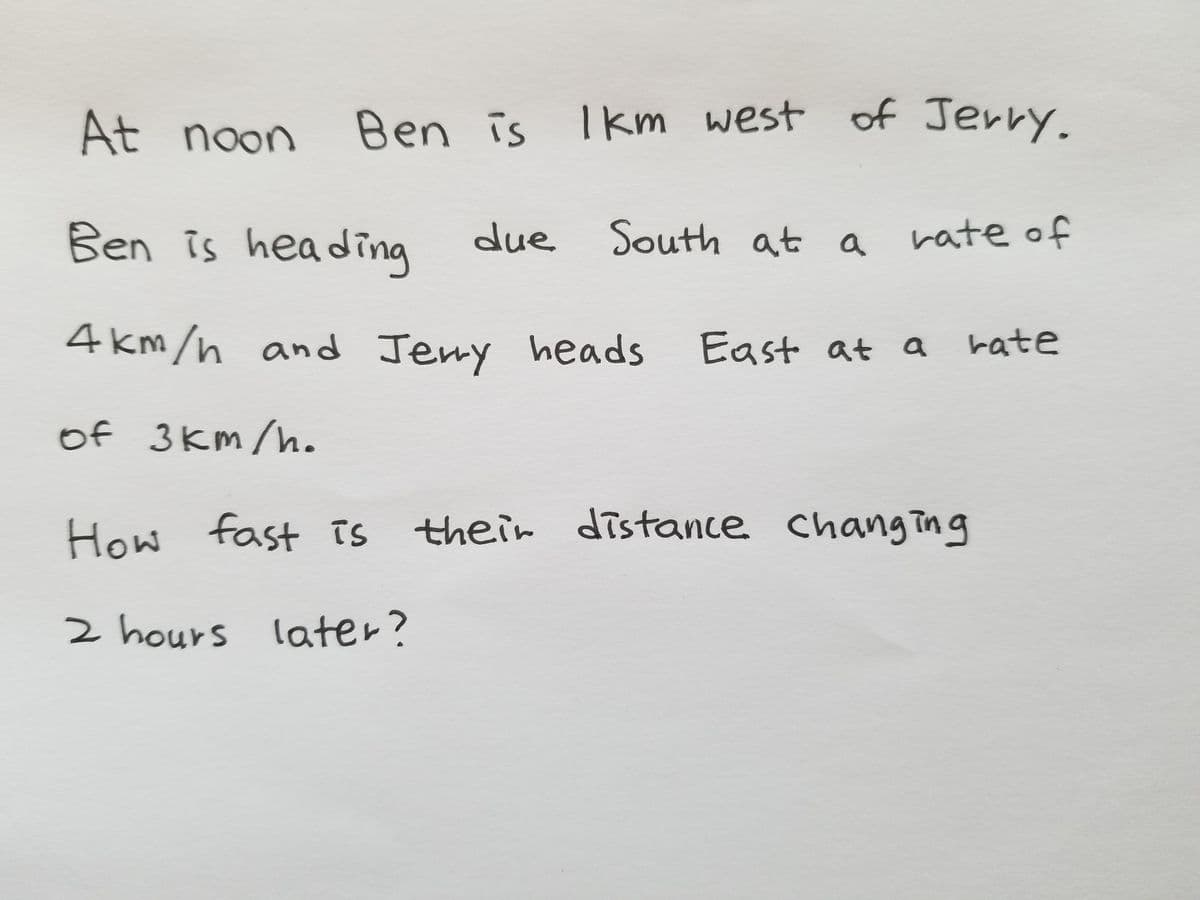 At noon Ben is 1km west of Jerry.
Ben is heading due South at a rate of
4km/h and Jerry heads East at a rate
of 3km/h.
How fast is their distance changing
2 hours later?